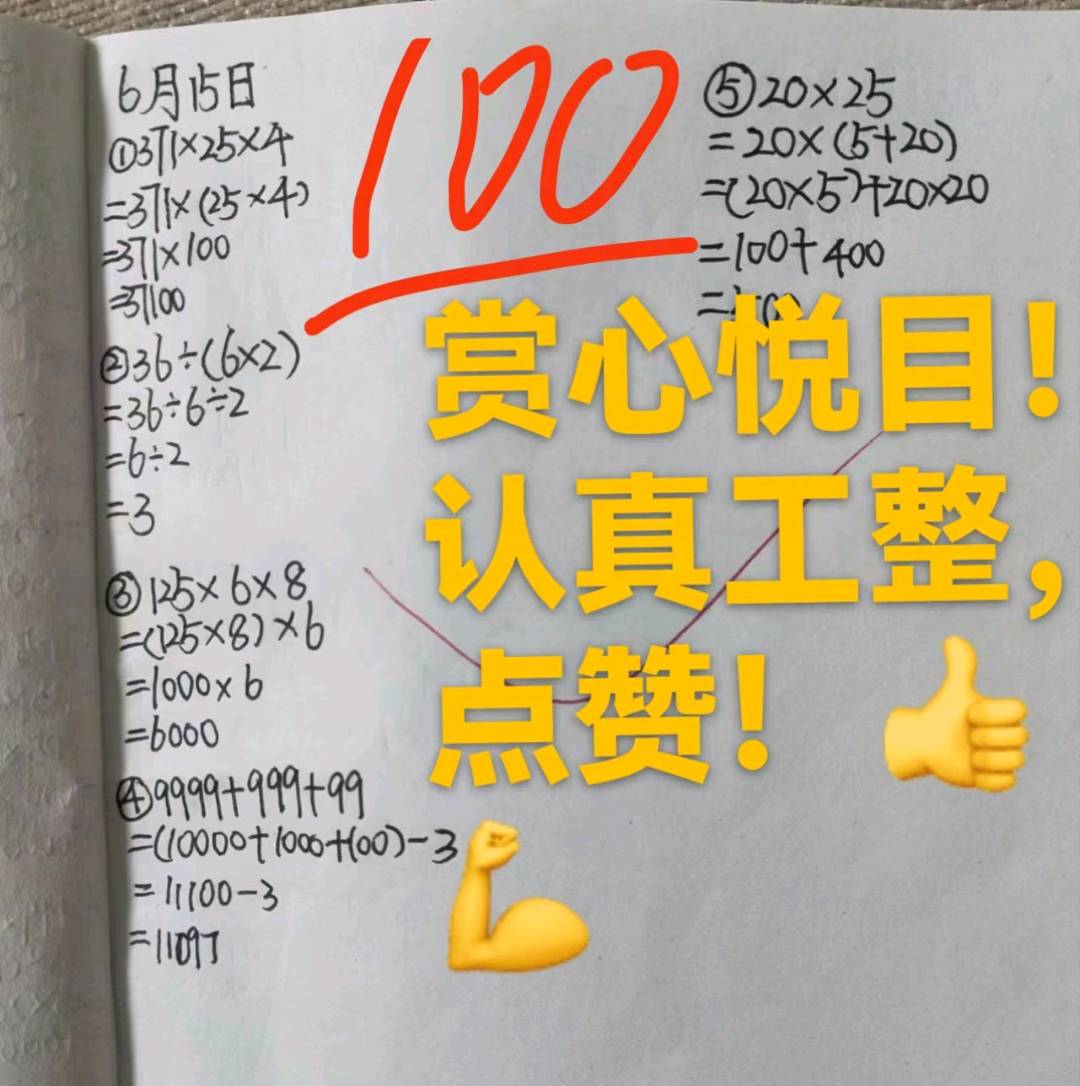 6月15日
①371×25×4
=371×(25×4)
=371×100
=37100
②36÷(6×2)
=36÷6÷2
=6÷2
=3
③125×6×8
=(125×8)×6
=1000×6
=6000
④9999+999+99
=(10000+1000+100)-3
=11100-3
=11097
100
⑤20×25
=20×(5+20)
=(20×5)+20×20
=100+400
赏心悦目!
认真工整,
点赞!